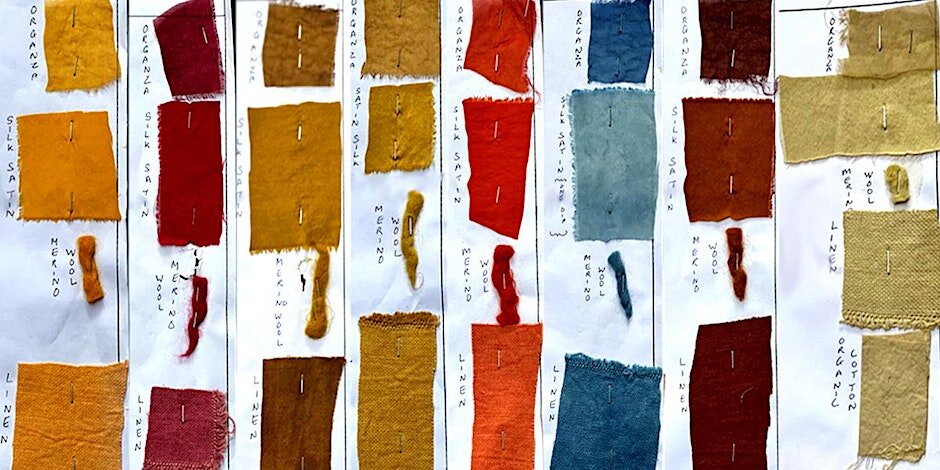 ORGANZA
SILK SATIN
MERINO
WOOL
LINEN
ORGANZA
SILK SATIN
MERINO
WOOL
LINEN
ORGANZA
SILK SATIN
MERINO WOOL
LINEN
ORGANZA
SATIN SILK
MERINO
WOOL
ORGANZA
SILK SATIN
MERINO
WOOL
LINEN
ORGANZA
SILK SATIN
MERINO
WOOL
LINEN
ORGANZA
SILK SATIN
MERINO
WOOL
LINEN
ORGANZA
MERINO
WOOL
LINEN
ORGANIC
COTTON